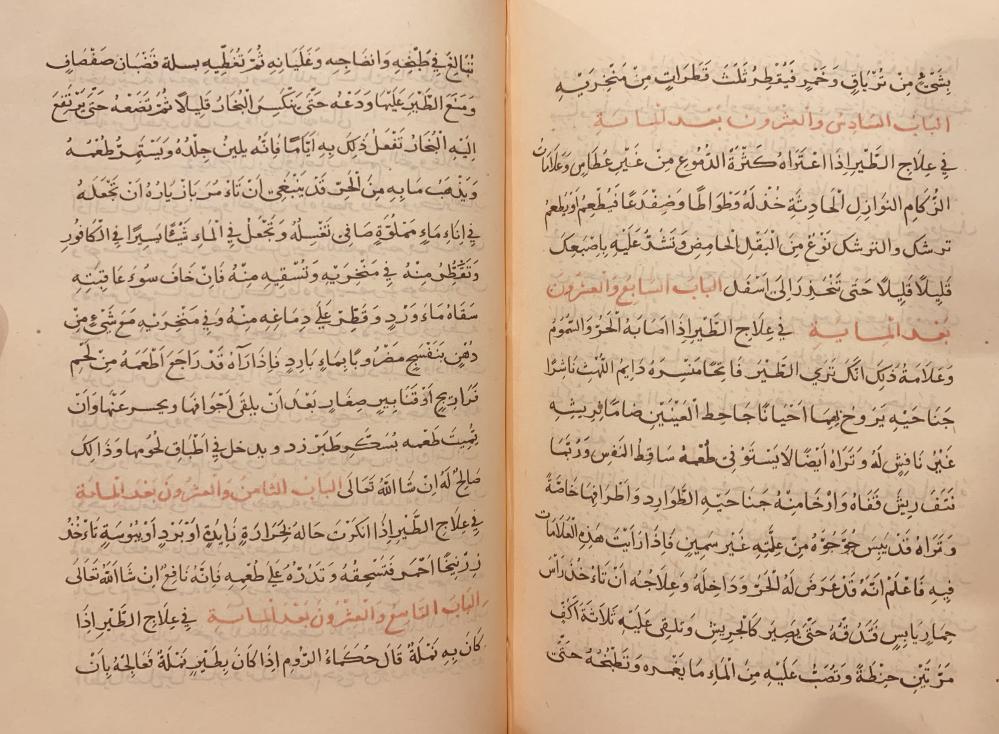 بشيء من ترياق وخمر فيقطر ثلث قطرات من منخريه
الباب السادس والعشرون بعد الماية
في علاج الطير اذا اعتراه كثرة الدموع من غير عطاس وعلامات
الزكام النوازل الحادثة خذ له وطواطا وضفدعا فيطعم او يطعم
ترشك والترشك نوع من البقل الحامض وتشد عليه باصبعك
قليلا قليلا حتى تنحدر الى اسفل الباب السابع والعشرون
بعد الماية في علاج الطير اذا اصابه الحر والسموم
وعلامة ذلك انك تري الطير فاتحا منسره دايم اللهث ناشرا
جناحيه يروح بهما احيانا جاحظ العينين ضاما لريشه
غير نافش له وتراه ايضا لا يستو في طعمه ساقط النفس وربما
نتف ريش قفاه وارخا منه جناحيه الطوارد واطرافها خاصة
وتراه قد يبس جوجوه من علته غير سمين فاذا رايت هذه العلامات
فيه فاعلم انه قد عرض له الحر وداخله وعلاجه ان تاخذ راس
حمار يابس فتدقه حتى يصير كالجريش وتلقى عليه ثلاثة اكف
مرتين حنطة وتصب عليه من الماء ما يغمره وتطبخه حتى
تبالغ في طبخه وانضاجه وغليانه ثم تغطيه بسلة قضبان صفصاف
وضع الطير عليها ودعه حتى ينكسر البخار قليلا ثم تضعه حتى يرتفع
اليه البخار تفعل ذلك به اياما فانه يلين جلده ويستمرئ طعمه
ويذهب ما به من الحر قد ينبغي ان تامر بازياره ان تجعل له
في اناء ماء مملوة صافى تغسله وتجعل في الماء شيئا يسيرا في الكافور
وتقطر منه في منخريه وتسقيه منه فان خاف سوء عاقبته
سقاه ماء ورد وقطر على دماغه منه وفي منخريه مع شيء من
دهن بنفسج مضروبا بماء بارد فاذا رآه قد راجع اطعمه من لحم
فراريج او قنابير صغار بعد ان يلقى اجوافها ويحسر عنها وان
يميت طعمه بسكر طبرزد ويدخل في اطباق لحومها وذالك
صالح له ان شا الله تعالى الباب الثامن والعشرون بعد الماية
في علاج الطير اذا انكرت حاله لحرارة زايدة او برد او يبوسة تاخذ
زرنيخا احمر فتسحقه وتذره على طعمه فانه نافع ان شا الله تعالى
الباب التاسع والعشرون بعد الماية في علاج الطير اذا
كان به نملة قال حكماء الروم اذا كان بطير نملة فعالجه بان